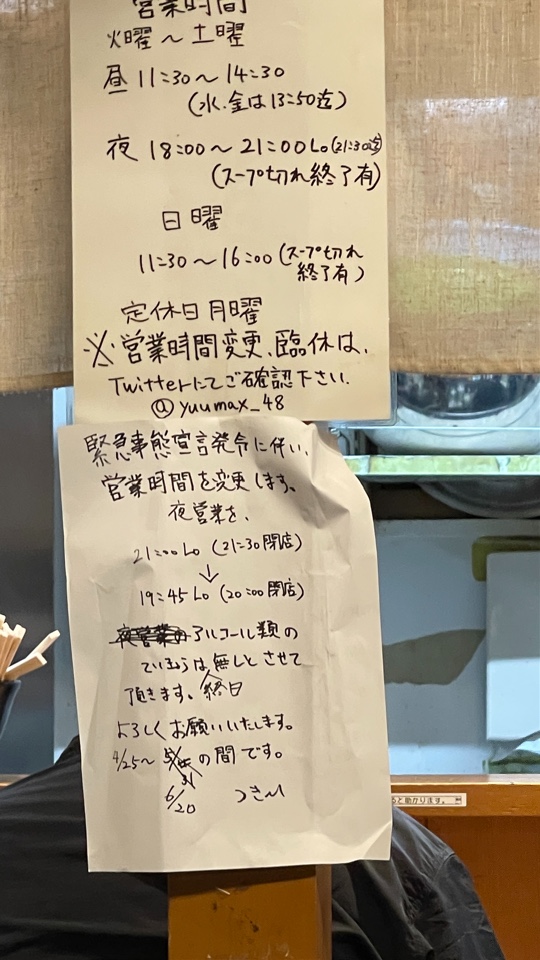 営業時間
火曜〜土曜
昼 11:30〜14:30
(水.金は13:50迄)
夜 18:00〜21:00Lo(21:30迄)
(スープ切れ終了有)
日曜
11:30〜16:00(スープ切れ
終了有)
定休日月曜
※営業時間変更、臨休は、
Twitterにてご確認下さい.
@yuumax_48
緊急事態宣言発令に伴い、
営業時間を変更します。
夜営業を、
21:00Lo(21:30閉店)
↓
19:45Lo(20:00閉店)
アルコール類の
ていきょうは無しとさせて
頂きます。終日
よろしくお願いいたします。
4/25〜 の間です。
31
6/20
と助かります。